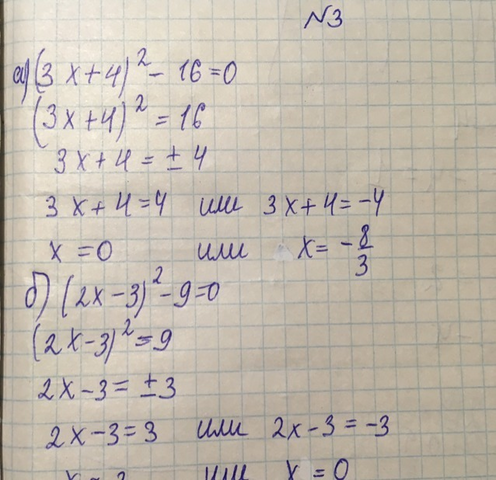 №3
а) (3x+4)² - 16=0
(3x+4)² = 16
3x+4 = ± 4
3x+4=4 или 3x+4=-4
x=0 или x= -8/3
б) (2x-3)² -9=0
(2x-3)² =9
2x-3= ±3
2x-3=3 или 2x-3=-3
или x=0